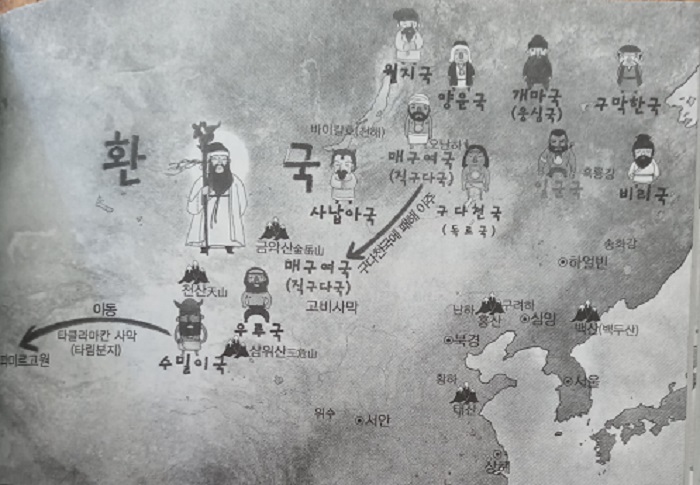 환 국
월지국
양운국
개마국
(웅심국)
구막한국
바이칼호(천해)
오난하
매구여국
(직구다국)
사납아국
구다천국
(독로국)
일군국
흑룡강
비리국
구다천국에 패해 이주
금악산金岳山
매구여국
(직구다국)
고비사막
송화강
하얼빈
천산天山
이동
타클라마칸 사막
(타림분지)
파미르고원
우루국
수밀이국
삼위산三危山
난하
홍산
구려하
심양
백산(백두산)
북경
황하
태산
서울
위수
서안
상해